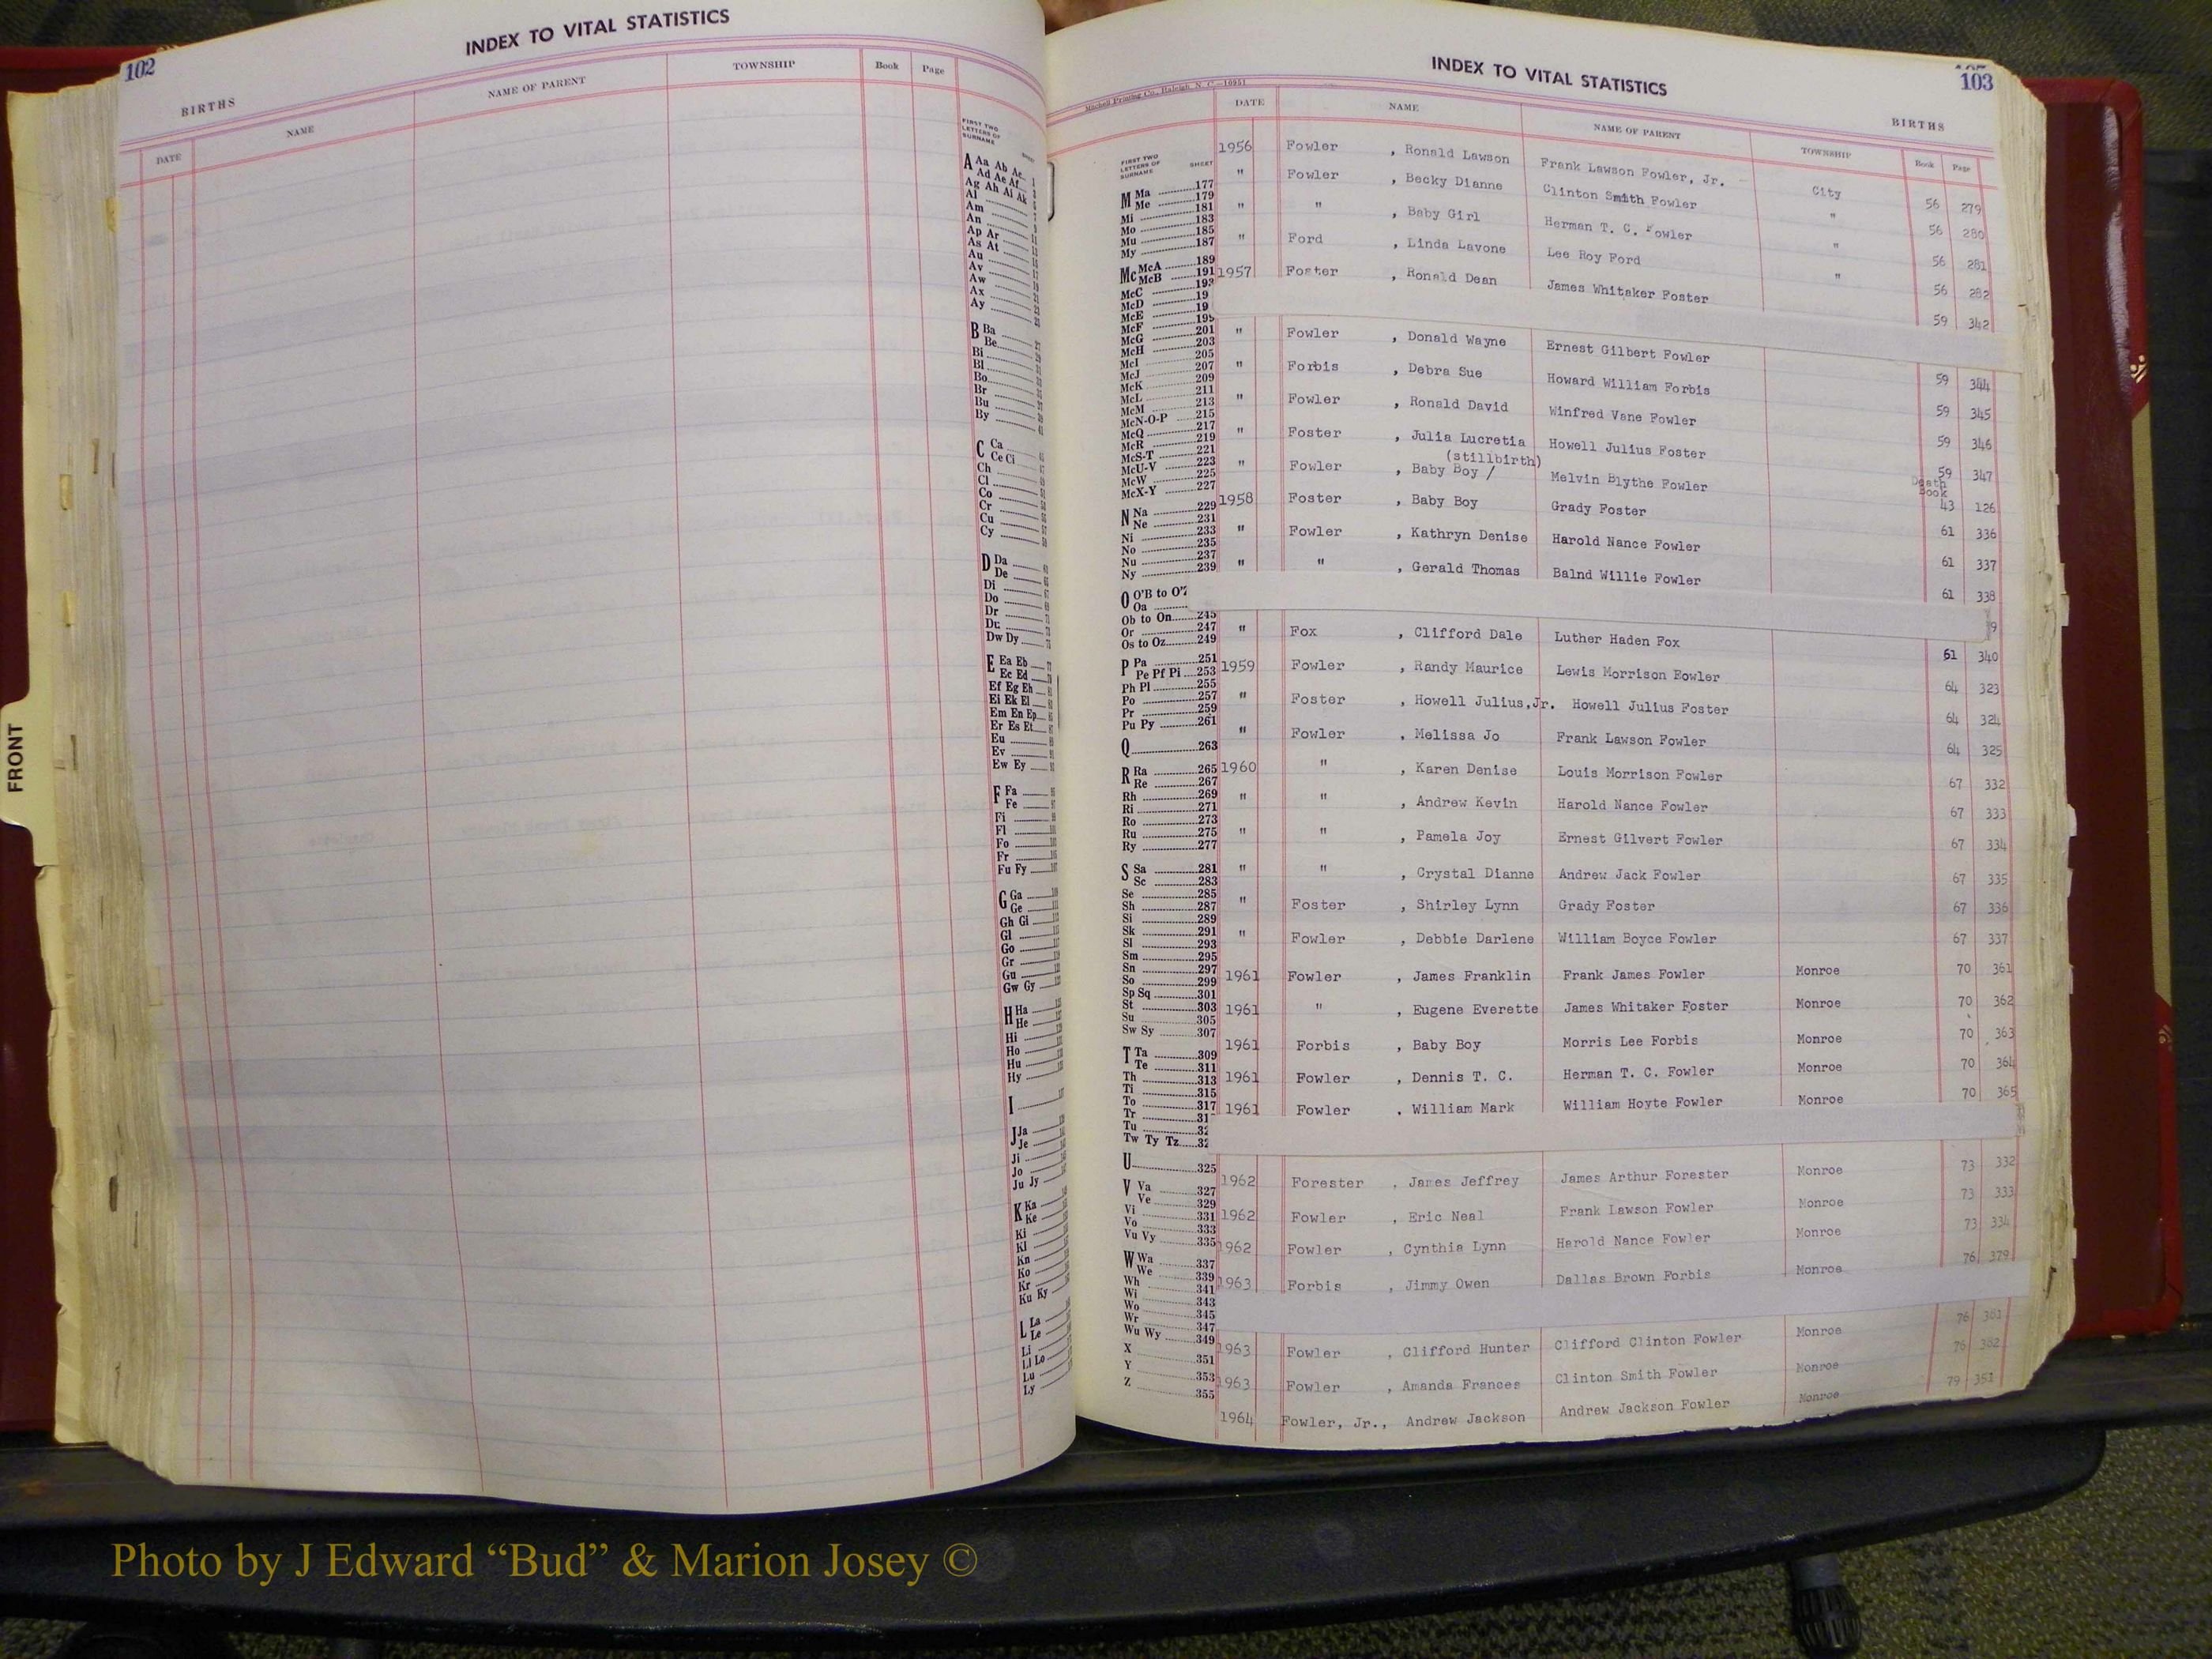 102
INDEX TO VITAL STATISTICS
BIRTHS
DATE NAME NAME OF PARENT TOWNSHIP Book Page
FIRST TWO
LETTERS OF
SURNAME
A Aa Ab Ac
Ad Ae Af
Ag Ah Ai Ak
Al
Am
An
Ap Ar
As At
Au
Av
Aw
Ax
Ay
B Ba
Be
Bi
Bl
Bo
Br
Bu
By
C Ca
Ce Ci
Ch
Cl
Co
Cr
Cu
Cy
D Da
De
Di
Do
Dr
Du
Dw Dy
E Ea Eb
Ec Ed
Ef Eg Eh
Ei Ek El
Em En Ep
Er Es Et
Eu
Ev
Ew Ey
F Fa
Fe
Fi
Fl
Fo
Fr
Fu Fy
G Ga
Ge
Gh Gi
Gl
Go
Gr
Gu
Gw Gy
H Ha
He
Hi
Ho
Hu
Hy
I
J Ja
Je
Ji
Jo
Ju Jy
K Ka
Ke
Ki
Kl
Kn
Ko
Kr
Ku Ky
L La
Le
Li
Ll Lo
Lu
Ly
FRONT
INDEX TO VITAL STATISTICS
103
Mitchell Printing Co., Raleigh, N. C.—10951
BIRTHS
DATE NAME NAME OF PARENT TOWNSHIP Book Page
FIRST TWO
LETTERS OF
SURNAME SHEET
M Ma 177
Me 179
Mi 181
Mo 183
Mu 185
My 187
Mc McA 189
McB 191
McC 193
McD 19
McE 19
McF 199
McG 201
McH 203
McI 205
McJ 207
McK 209
McL 211
McM 213
McN-O-P 215
McQ 217
McR 219
McS-T 221
McU-V 223
McW 225
McX-Y 227
N Na 229
Ne 231
Ni 233
No 235
Nu 237
Ny 239
O O'B to O'Z
Oa
Ob to On 245
Or 247
Os to Oz 249
P Pa 251
Pe Pf Pi 253
Ph Pl 255
Po 257
Pr 259
Pu Py 261
Q 263
R Ra 265
Re 267
Rh 269
Ri 271
Ro 273
Ru 275
Ry 277
S Sa 281
Sc 283
Se 285
Sh 287
Si 289
Sk 291
Sl 293
Sm 295
Sn 297
So 299
Sp Sq 301
St 303
Su 305
Sw Sy 307
T Ta 309
Te 311
Th 313
Ti 315
To 317
Tr 31
Tu 32
Tw Ty Tz 32
U 325
V Va 327
Ve 329
Vi 331
Vo 333
Vu Vy 335
W Wa 337
We 339
Wh 341
Wi 343
Wo 345
Wr 347
Wu Wy 349
X 351
Y 353
Z 355
1956 Fowler , Ronald Lawson Frank Lawson Fowler, Jr. City 56 279
" Fowler , Becky Dianne Clinton Smith Fowler " 56 280
" " , Baby Girl Herman T. C. Fowler " 56 281
" Ford , Linda Lavone Lee Roy Ford " 56 282
1957 Foster , Ronald Dean James Whitaker Foster 59 342
" Fowler , Donald Wayne Ernest Gilbert Fowler 59 344
" Forbis , Debra Sue Howard William Forbis 59 345
" Fowler , Ronald David Winfred Vane Fowler 59 346
" Foster , Julia Lucretia Howell Julius Foster 59 347
(stillbirth)
" Fowler , Baby Boy / Melvin Blythe Fowler Death Book 43 126
1958 Foster , Baby Boy Grady Foster 61 336
" Fowler , Kathryn Denise Harold Nance Fowler 61 337
" " , Gerald Thomas Balnd Willie Fowler 61 338
9
" Fox , Clifford Dale Luther Haden Fox 61 340
1959 Fowler , Randy Maurice Lewis Morrison Fowler 64 323
" Foster , Howell Julius,Jr. Howell Julius Foster 64 324
" Fowler , Melissa Jo Frank Lawson Fowler 64 325
1960 " , Karen Denise Louis Morrison Fowler 67 332
" " , Andrew Kevin Harold Nance Fowler 67 333
" " , Pamela Joy Ernest Gilvert Fowler 67 334
" " , Crystal Dianne Andrew Jack Fowler 67 335
" Foster , Shirley Lynn Grady Foster 67 336
" Fowler , Debbie Darlene William Boyce Fowler 67 337
1961 Fowler , James Franklin Frank James Fowler Monroe 70 361
1961 " , Eugene Everette James Whitaker Foster Monroe 70 362
1961 Forbis , Baby Boy Morris Lee Forbis Monroe 70 363
1961 Fowler , Dennis T. C. Herman T. C. Fowler Monroe 70 364
1961 Fowler , William Mark William Hoyte Fowler Monroe 70 365
1962 Forester , James Jeffrey James Arthur Forester Monroe 73 332
1962 Fowler , Eric Neal Frank Lawson Fowler Monroe 73 333
1962 Fowler , Cynthia Lynn Harold Nance Fowler Monroe 73 334
1963 Forbis , Jimmy Owen Dallas Brown Forbis Monroe 76 379
1963 Fowler , Clifford Hunter Clifford Clinton Fowler Monroe 76 381
1963 Fowler , Amanda Frances Clinton Smith Fowler Monroe 76 382
1964 Fowler, Jr., Andrew Jackson Andrew Jackson Fowler Monroe 79 351
Photo by J Edward “Bud” & Marion Josey ©